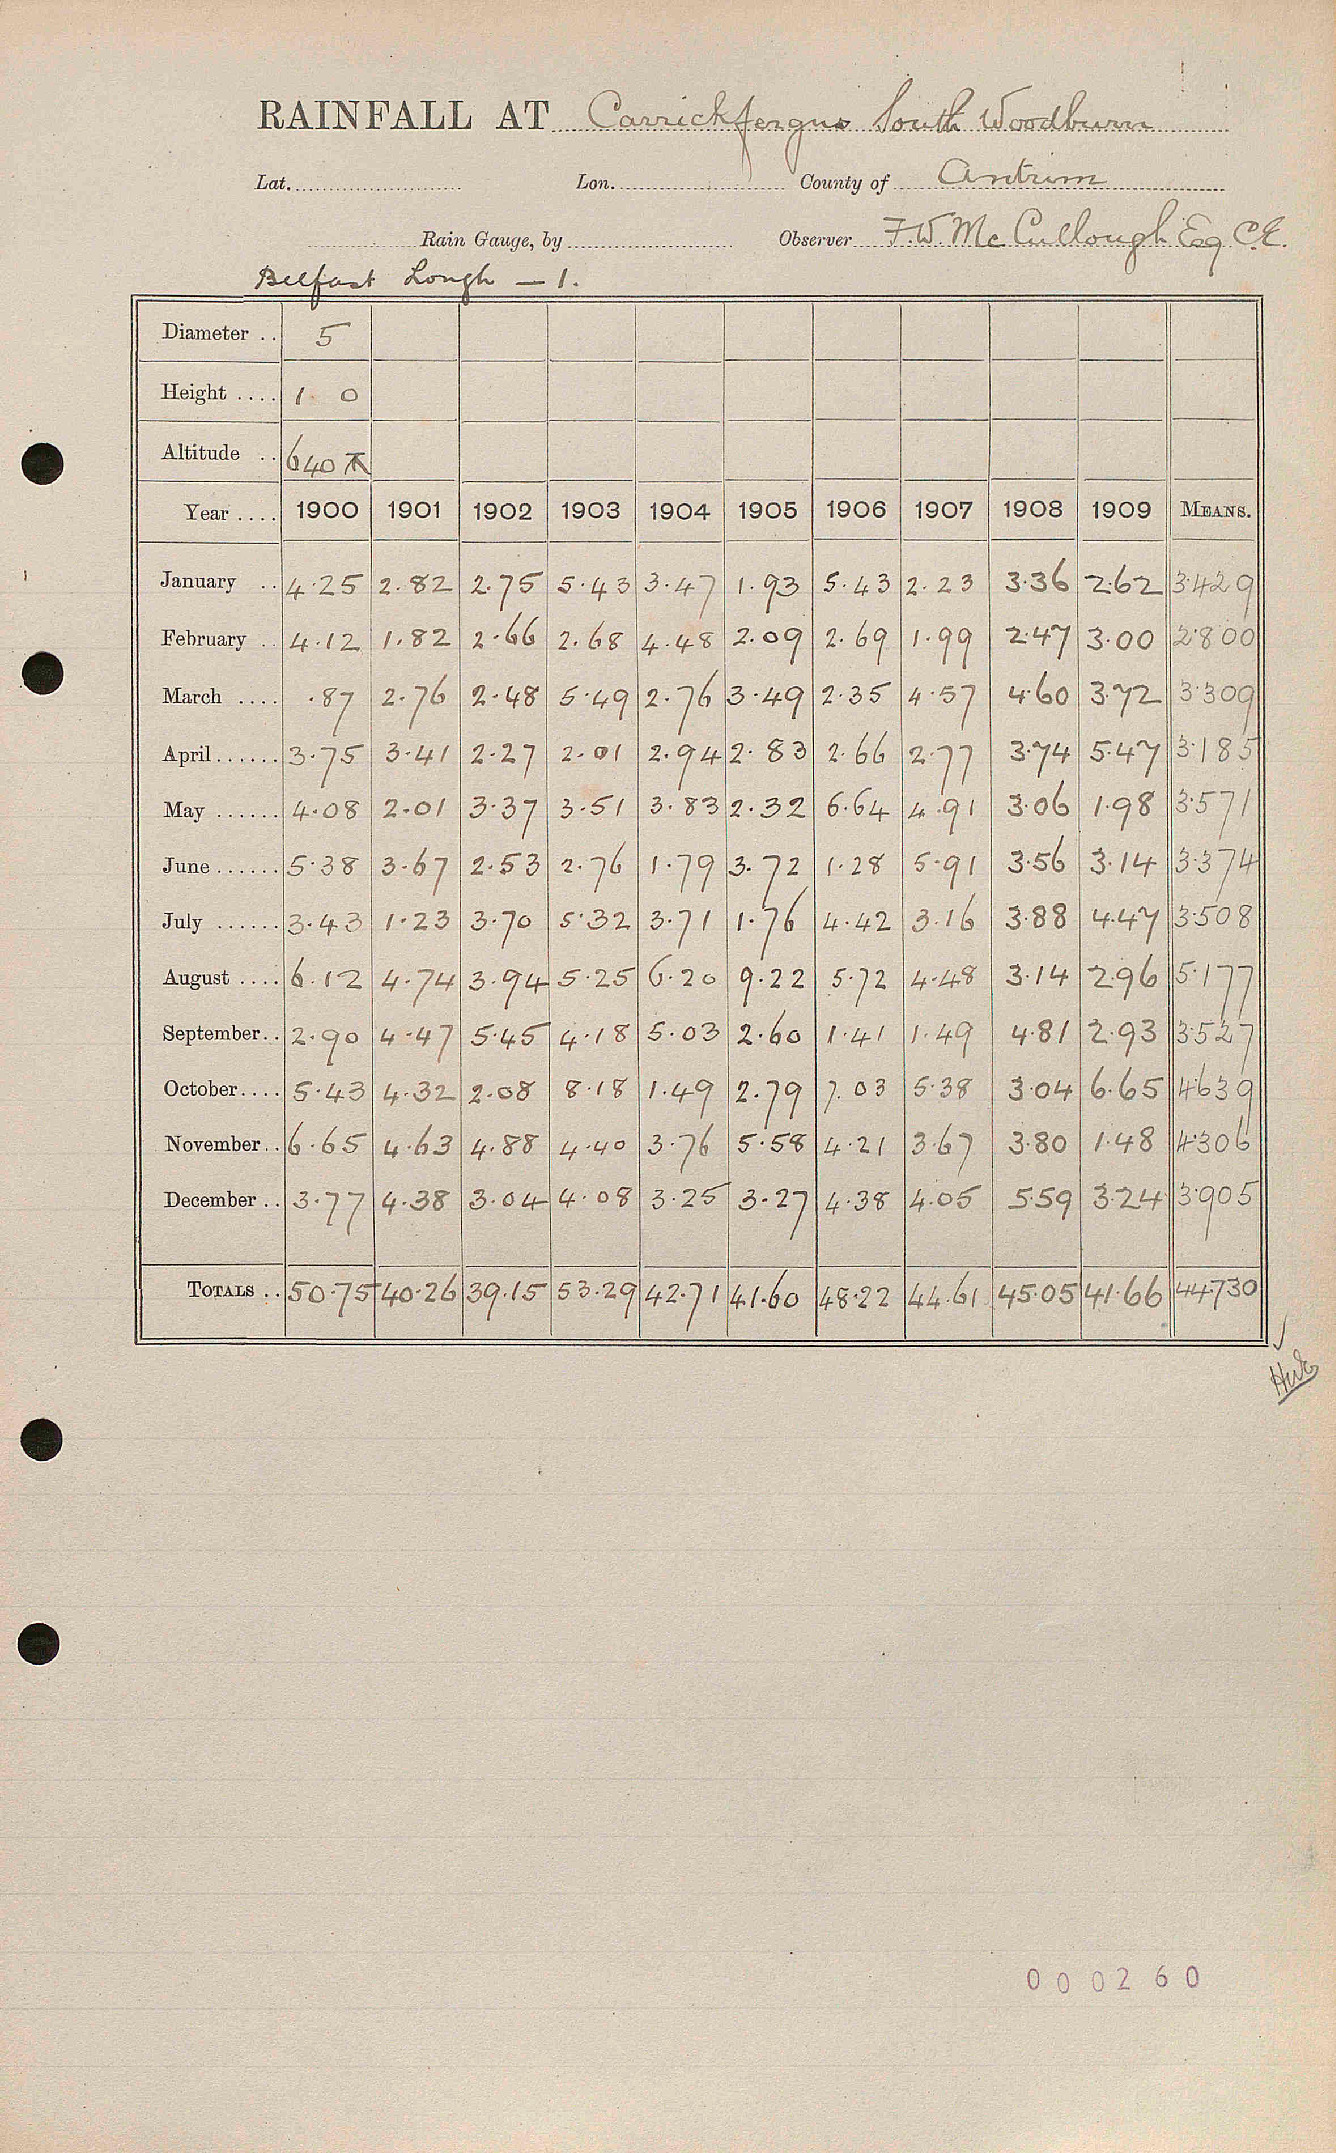 RAINFALL AT Carrickfergus South Woodburn
Lat. Lon. County of Antrim
Rain Gauge, by Observer F.W. McCullough Esq C.E.
Belfast Lough — 1.
Diameter .. 5
Height .... 1 0
Altitude .. 640
Year .... 1900 1901 1902 1903 1904 1905 1906 1907 1908 1909 MEANS.
January .. 4.25 2.82 2.75 5.43 3.47 1.93 5.43 2.23 3.36 2.62 3.429
February .. 4.12 1.82 2.66 2.68 4.48 2.09 2.69 1.99 2.47 3.00 2.800
March .... .87 2.76 2.48 5.49 2.76 3.49 2.35 4.57 4.60 3.72 3.309
April ...... 3.75 3.41 2.27 2.01 2.94 2.83 2.66 2.77 3.74 5.47 3.185
May ...... 4.08 2.01 3.37 3.51 3.83 2.32 6.64 4.91 3.06 1.98 3.571
June ...... 5.38 3.67 2.53 2.76 1.79 3.72 1.28 5.91 3.56 3.14 3.374
July ...... 3.43 1.23 3.70 5.32 3.71 1.76 4.42 3.16 3.88 4.47 3.508
August .... 6.12 4.74 3.94 5.25 6.20 9.22 5.72 4.48 3.14 2.96 5.177
September .. 2.90 4.47 5.45 4.18 5.03 2.60 1.41 1.49 4.81 2.93 3.527
October .... 5.43 4.32 2.08 8.18 1.49 2.79 7.03 5.38 3.04 6.65 4.639
November .. 6.65 4.63 4.88 4.40 3.76 5.58 4.21 3.67 3.80 1.48 4.306
December .. 3.77 4.38 3.04 4.08 3.25 3.27 4.38 4.05 5.59 3.24 3.905
TOTALS .. 50.75 40.26 39.15 53.29 42.71 41.60 48.22 44.61 45.05 41.66 44.730
000260